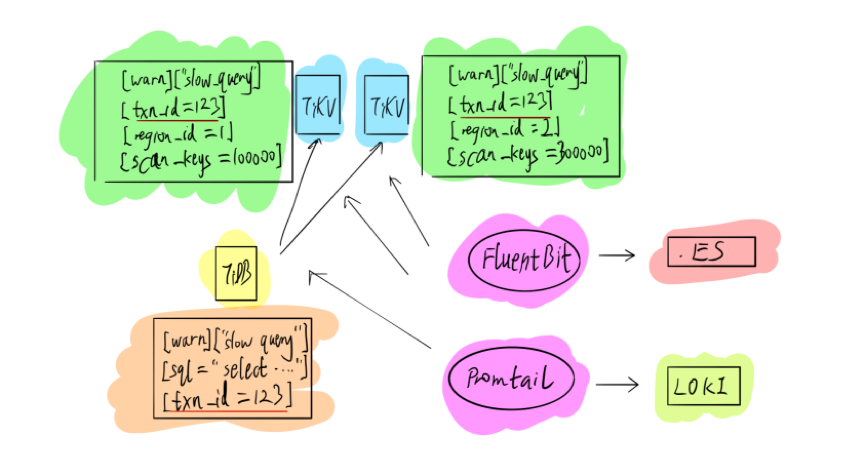 [warn]["slow_query"]
[txn_id=123]
[region_id=1]
[scan_keys=100000]
TiKV
TiKV
[warn]["slow_query"]
[txn_id=123]
[region_id=2]
[scan_keys=300000]
TiDB
[warn]["slow query"]
[sql="select ...."]
[txn_id=123]
FluentBit
.ES
Promtail
LOKI